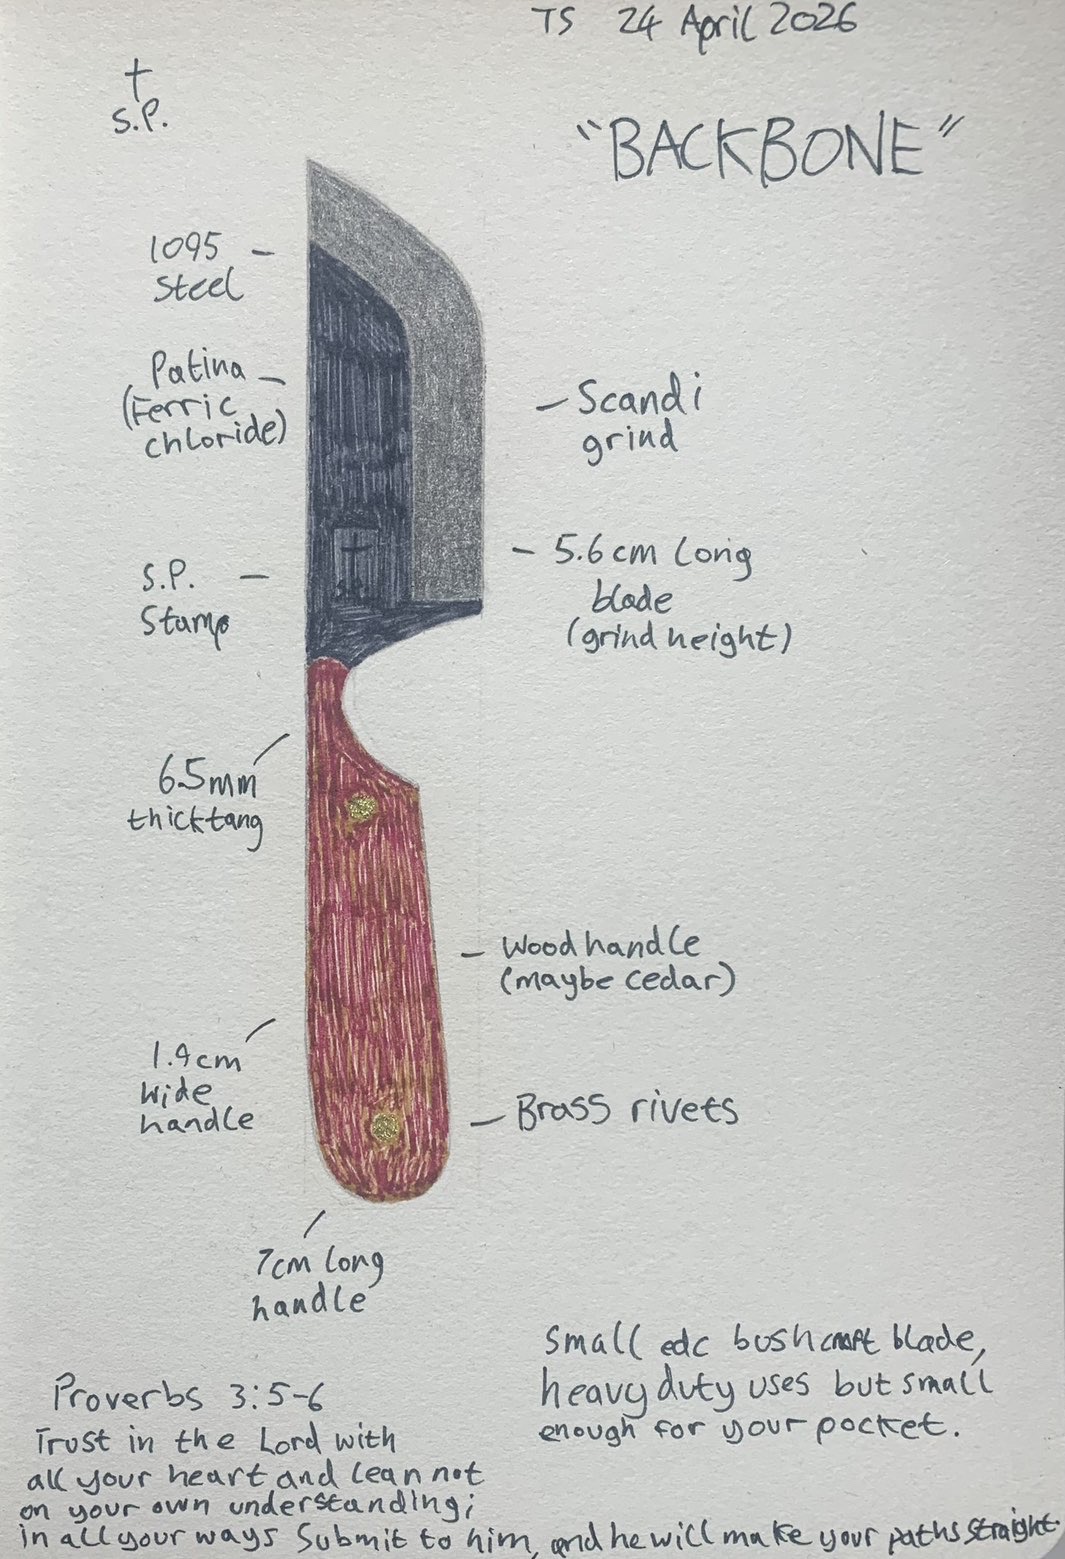 TS 24 April 2026
†
S.P.
"BACKBONE"
1095
Steel
Patina
(Ferric
chloride)
Scandi
grind
S.P.
Stamp
5.6cm long
blade
(grind height)
†
S.P.
6.5mm
thick tang
Wood handle
(maybe cedar)
1.9cm
wide
handle
Brass rivets
7cm long
handle
Small edc bushcraft blade,
heavy duty uses but small
enough for your pocket.
Proverbs 3:5-6
Trust in the Lord with
all your heart and lean not
on your own understanding;
in all your ways Submit to him, and he will make your paths straight.